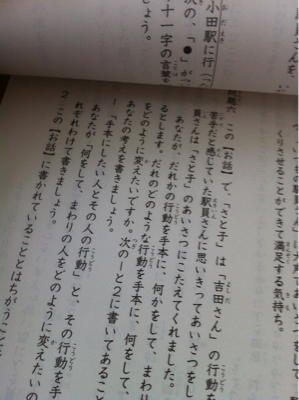 員さんを、
小田駅に行(
次の、「●」が
十一字の言葉を
しょう。
くりさせることができて満足する気持ち。
問題六 この【お話】で、「さと子」は「吉田さん」の行動を
苦手だと感じていた駅員さんに思いきってあいさつをし
員さんは、「さと子」のあいさつにこたえてくれました。
あなたが、だれかの行動を手本に、何かをして、まわり
るとします。だれのどのような行動を手本に、何をして、
をどのように変えたいですか。次の1と2に書いてあること
あなたの考えを書きましょう。
1 「手本にしたい人とその人の行動」と、その行動を手
あなたが「何をして、まわりの人をどのように変えたいの
れぞれわけて書きましょう。
2 この【お話】に書かれていることとはちがうことを